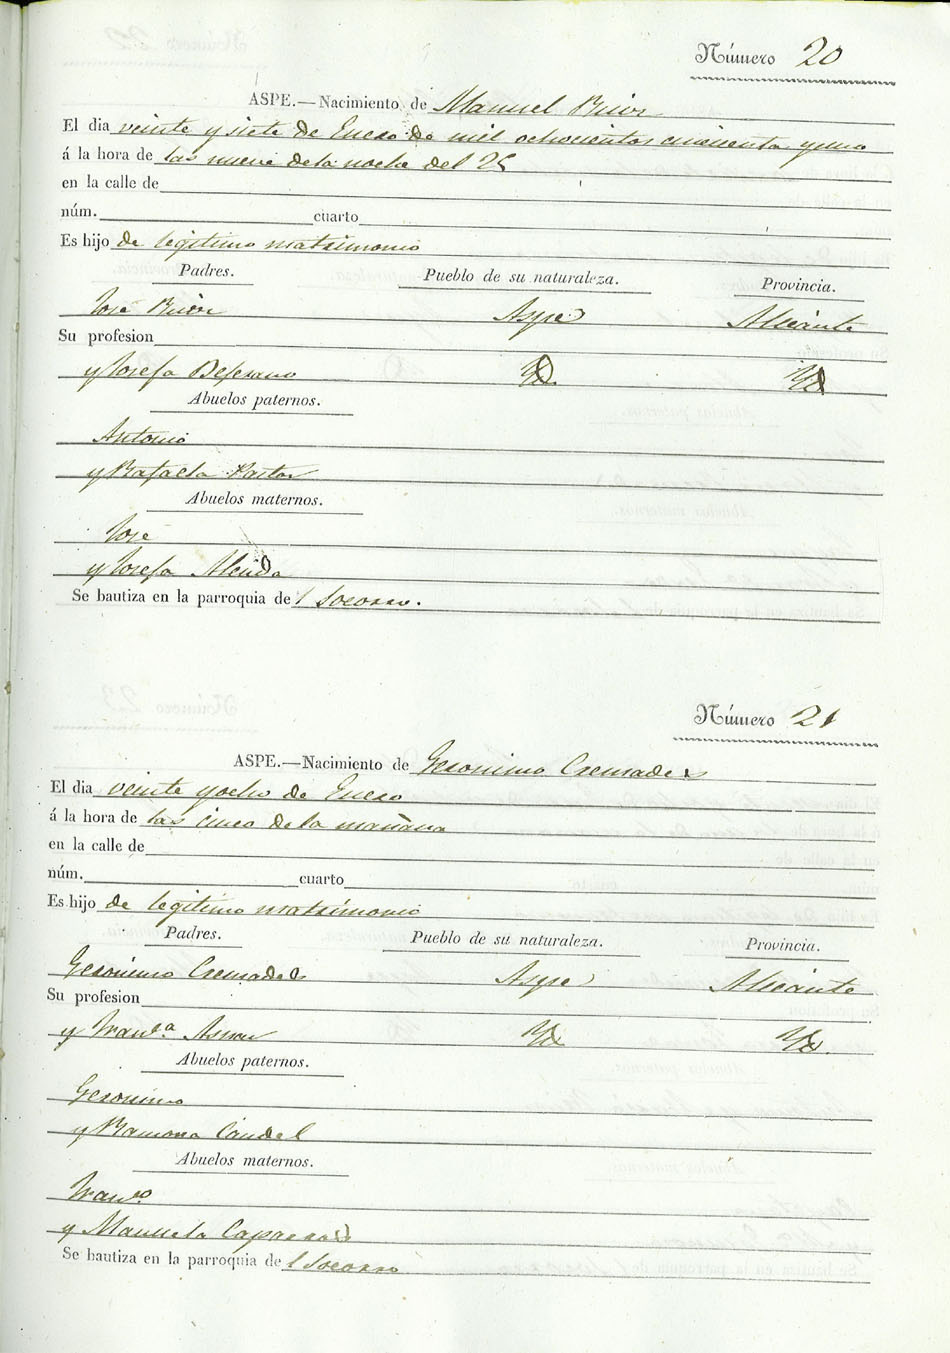 Número 20
ASPE.—Nacimiento de Manuel
El dia veinte y siete de Enero de mil ochocientos cincuenta y uno
á la hora de las nueve de la noche del 25
en la calle de
núm. cuarto
Es hijo de legitimo matrimonio
Padres. Pueblo de su naturaleza. Provincia.
José Aspe Alicante
Su profesion
y Josefa Yd. Yd
Abuelos paternos.
Antonio
y Rafaela Pastor
Abuelos maternos.
José
y Josefa
Se bautiza en la parroquia del Socorro.
Número 21
ASPE.—Nacimiento de Geronimo Cremades
El dia veinte y ocho de Enero
á la hora de las cinco de la mañana
en la calle de
núm. cuarto
Es hijo de legitimo matrimonio
Padres. Pueblo de su naturaleza. Provincia.
Geronimo Cremades Aspe Alicante
Su profesion
y Franca. Yd. Yd.
Abuelos paternos.
Geronimo
y Ramona Candel
Abuelos maternos.
Franco
y Manuela Caparros
Se bautiza en la parroquia del Socorro